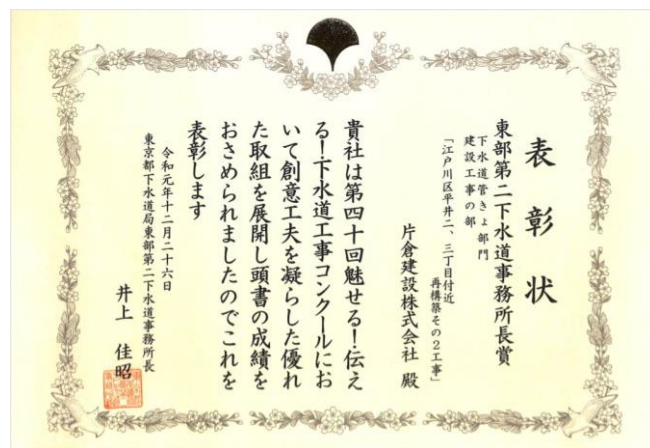 表彰状
東部第二下水道事務所長賞
下水道管きょ部門
建設工事の部
「江戸川区平井二、三丁目付近
再構築その2工事」
片倉建設株式会社 殿
貴社は第四十回魅せる!伝え
る!下水道工事コンクールにお
いて創意工夫を凝らした優れ
た取組を展開し頭書の成績を
おさめられましたのでこれを
表彰します
令和元年十二月二十六日
東京都下水道局東部第二下水道事務所長
井上 佳昭